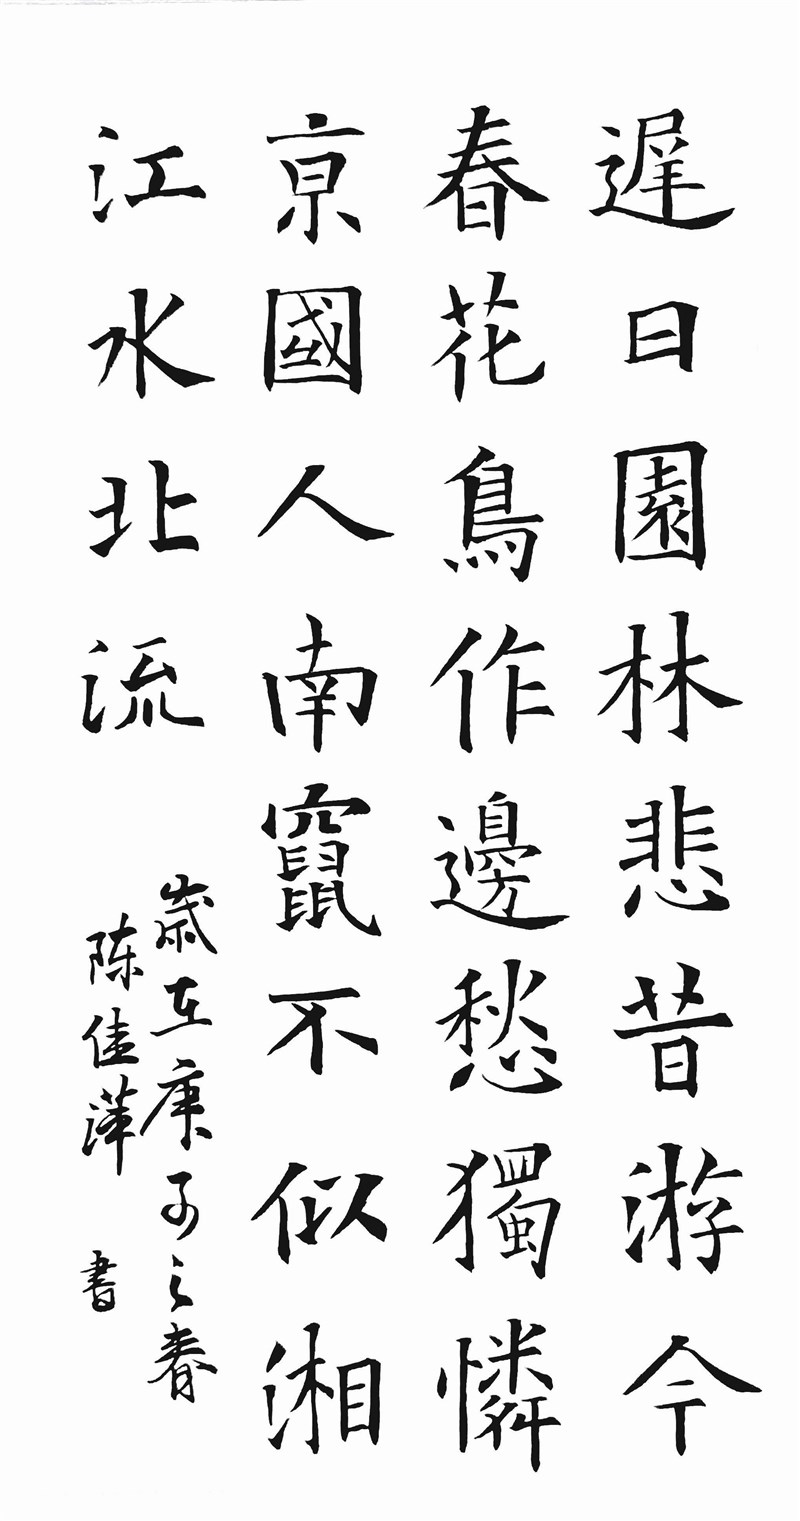 遲日園林悲昔游今
春花鳥作邊愁獨憐
京國人南竄不似湘
江水北流
歲在庚子之春
陈佳萍
書